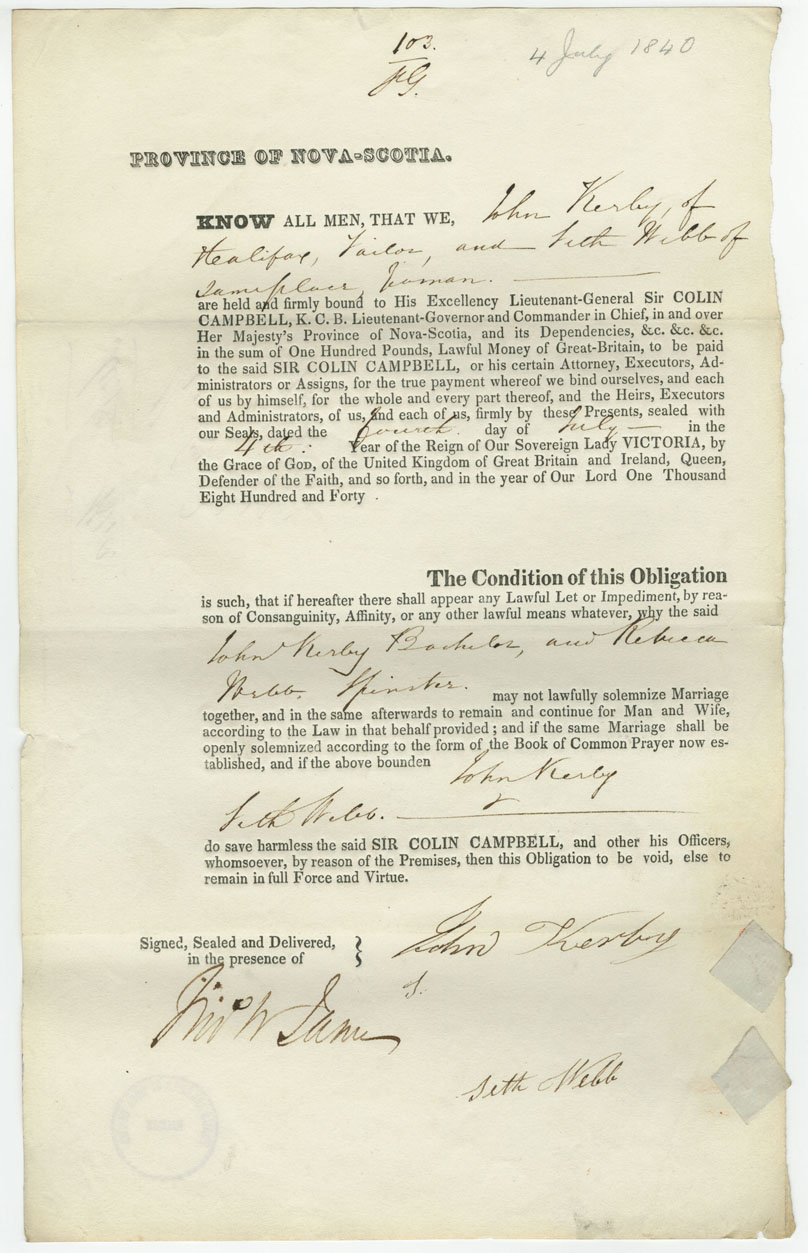 103.
4 July 1840
PROVINCE OF NOVA-SCOTIA.
KNOW ALL MEN, THAT WE, John Kerby, of
Halifax, Tailor, and Seth Webb of
same place, Yeoman.
are held and firmly bound to His Excellency Lieutenant-General Sir COLIN
CAMPBELL, K. C. B. Lieutenant-Governor and Commander in Chief, in and over
Her Majesty's Province of Nova-Scotia, and its Dependencies, &c. &c. &c.
in the sum of One Hundred Pounds, Lawful Money of Great-Britain, to be paid
to the said SIR COLIN CAMPBELL, or his certain Attorney, Executors, Ad-
ministrators or Assigns, for the true payment whereof we bind ourselves, and each
of us by himself, for the whole and every part thereof, and the Heirs, Executors
and Administrators, of us, and each of us, firmly by these Presents, sealed with
our Seals, dated the fourth day of July in the
4th: Year of the Reign of Our Sovereign Lady VICTORIA, by
the Grace of GOD, of the United Kingdom of Great Britain and Ireland, Queen,
Defender of the Faith, and so forth, and in the year of Our Lord One Thousand
Eight Hundred and Forty .
The Condition of this Obligation
is such, that if hereafter there shall appear any Lawful Let or Impediment, by rea-
son of Consanguinity, Affinity, or any other lawful means whatever, why the said
John Kerby Bachelor, and Rebecca
Webb. Spinster. may not lawfully solemnize Marriage
together, and in the same afterwards to remain and continue for Man and Wife,
according to the Law in that behalf provided ; and if the same Marriage shall be
openly solemnized according to the form of the Book of Common Prayer now es-
tablished, and if the above bounden John Kerby
Seth Webb.
do save harmless the said SIR COLIN CAMPBELL, and other his Officers,
whomsoever, by reason of the Premises, then this Obligation to be void, else to
remain in full Force and Virtue.
Signed, Sealed and Delivered,
in the presence of
John Kerby
S.
Jno W James
Seth Webb